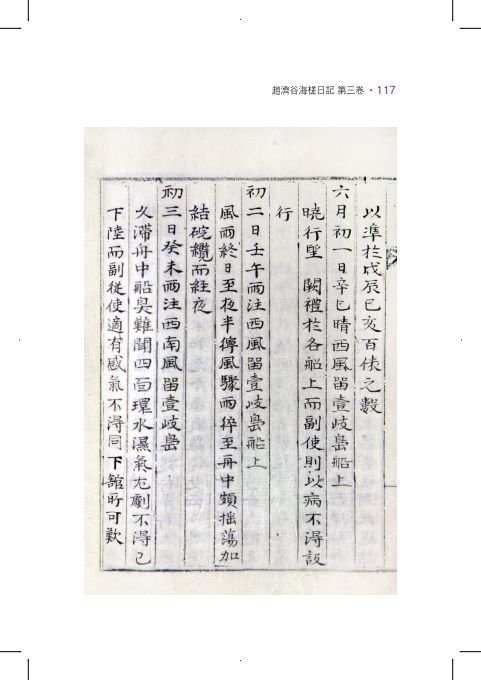 趙濟谷海槎日記 第三卷 · 117
以準於戊辰己亥百俵之數
六月初一日辛巳晴西風留壹岐島船上
曉行望 闕禮於各船上而副使則以病不得設
行
初二日壬午雨注西風留壹岐島船上
風雨終日至夜半獰風驟雨猝至舟中頗搖蕩加
結碇纜而經夜
初三日癸未雨注西南風留壹岐島
久滯舟中船臭難聞四面環水濕氣尤劇不得已
下陸而副從使適有感氣不得同下舘所可歎